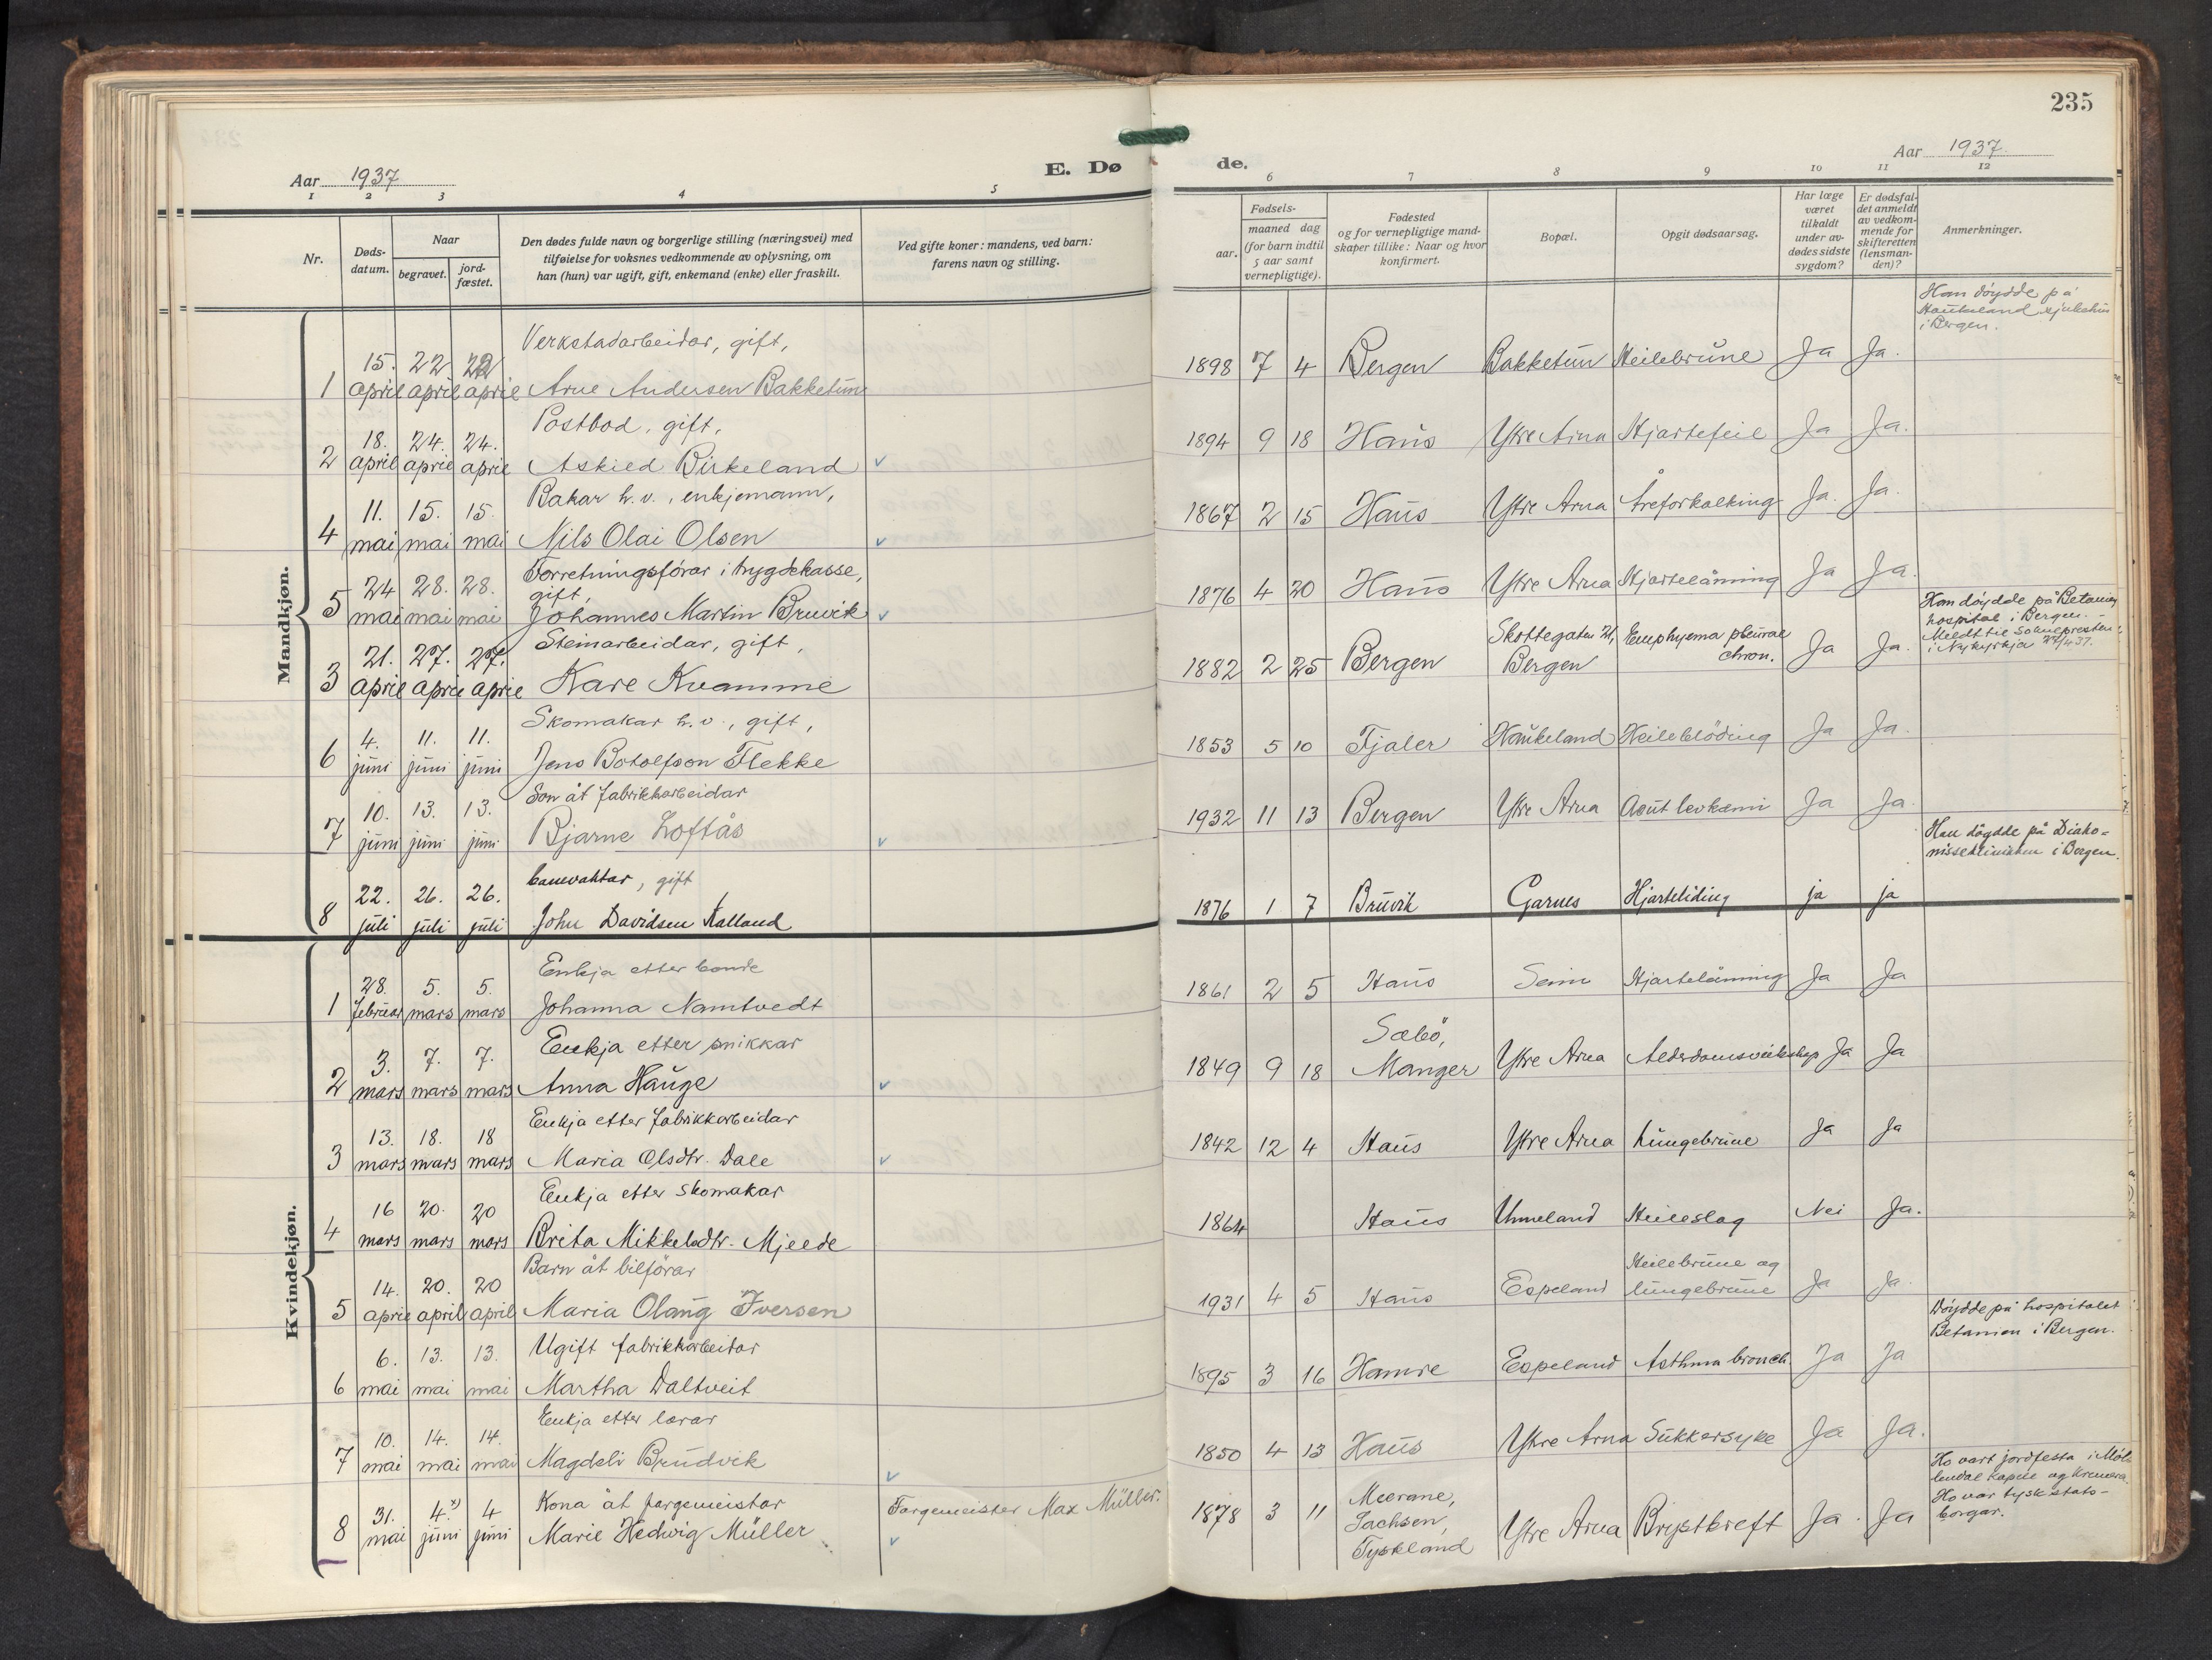 235
Aar 1937
E. Dø
de.
Aar 1937.
1 2 3 4 5
6 7 8 9 10 11 12
Nr.
Døds-
datum.
Naar
begravet.
jord-
fæstet.
Den dødes fulde navn og borgerlige stilling (næringsvei) med
tilføielse for voksnes vedkommende av oplysning, om
han (hun) var ugift, gift, enkemand (enke) eller fraskilt.
Ved gifte koner: mandens, ved barn:
farens navn og stilling.
Fødsels-
aar.
maaned dag
(for barn indtil
5 aar samt
vernepligtige).
Fødested
og for vernepligtige mand-
skaper tillike: Naar og hvor
konfirmert.
Bopæl.
Opgit dødsaarsag.
Har læge
været
tilkaldt
under av-
dødes sidste
sygdom?
Er dødsfal-
det anmeldt
av vedkom-
mende for
skifteretten
(lensman-
den)?
Anmerkninger.
Mandkjøn.
Verkstadarbeidar, gift,
15. 22 22
1 april april april Arne Andersen Bakketun
1898 7 4 Bergen Bakketun Heilebrune Ja Ja.
Han døydde på
Haukeland sjukehus
i Bergen.
Postbod, gift,
18. 24. 24.
2 april april april Askild Birkeland
1894 9 18 Haus Ytre Arna Hjartefeil Ja Ja.
Bakar h.v., enkjemann,
11. 15. 15.
4 mai mai mai Nils Olai Olsen
1867 2 15 Haus Ytre Arna Åreforkalking Ja. Ja.
Forretningsførar i trygdekasse,
24 28. 28. gift,
5 mai mai mai Johannes Martin Bruvik
1876 4 20 Haus Ytre Arna Hjartelämning Ja Ja.
Steinarbeidar, gift,
21. 27. 27.
3 april april april Kare Kvamme
1882 2 25 Bergen Skottegaten 21,
Bergen
Emphyema pleurae
chron.
Ja Ja.
Han døydde på Betanien
hospital i Bergen.
Meldt til Soknepresten
i Nykyrkja 27/4 37.
Skomakar h.v., gift,
4. 11. 11.
6 juni juni juni Jens Botolfson Flekke
1853 5 10 Fjaler Haukeland Heileblöding Ja Ja.
Son åt fabrikkarbeidar
10. 13. 13.
7 juni juni juni Bjarne Loftås
1932 11 13 Bergen Ytre Arna Acut levkemi Ja Ja.
Han døydde på Diako-
nisseklinikken i Bergen.
banevaktar, gift
22. 26. 26.
8 juli juli juli John Davidsen Kalland
1876 1 7 Bruvik Garnes Hjarteliding ja ja
Kvindekjøn.
Enkja etter bonde
28. 5. 5.
1 februar mars mars Johanna Namtvedt
1861 2 5 Haus Seim Hjartelämning Ja Ja
Enkja etter snikkar
3. 7. 7.
2 mars mars mars Anna Hauge
1849 9 18 Sæbö,
Manger
Ytre Arna Alderdomsveikskap Ja Ja
Enkja etter fabrikkarbeidar
13. 18. 18
3 mars mars mars Maria Olsdtr. Dale
1842 12 4 Haus Ytre Arna Lungebrune Ja Ja
Enkja etter skomakar
16 20. 20
4 mars mars mars Brita Mikkelsdtr. Mjelde
1864 Haus Unneland Heileslag Nei Ja.
Barn åt bilførar
14. 20. 20
5 april april april Maria Olaug Iversen
1931 4 5 Haus Espeland Heilebrune og
lungebrune
Ja Ja.
Ugift fabrikkarbeidar
6. 13. 13.
6 mai mai mai Martha Daltveit
1895 3 16 Hamre Espeland Asthma bronch. Ja Ja
Døydde på hospitalet
Betanien i Bergen.
Enkja etter lærar
10. 14. 14.
7 mai mai mai Magdeli Brudvik
1850 4 13 Haus Ytre Arna Sukkersyke Ja Ja.
Kona åt fargemeistar
31. 4.*) 4
8 mai juni juni Marie Hedwig Müller
Fargemeister Max Müller.
1878 3 11 Meerane,
Sachsen,
Tyskland
Ytre Arna Brystkreft Ja. Ja
Ho vart jordfesta i Møl-
lendal kapell og
Ho var tysk stats-
borgar.